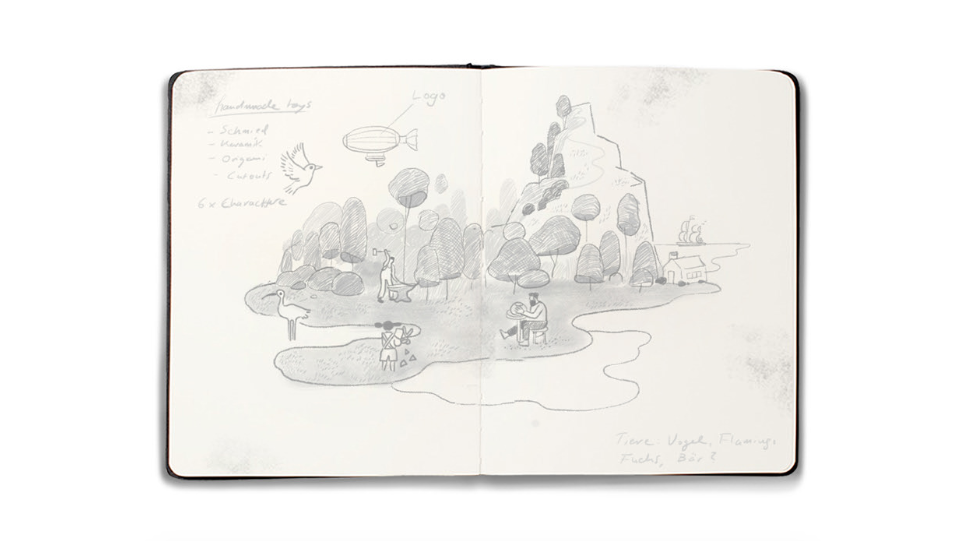 handmade toys
- Schmied
- Keramik
- Origami
- Cutouts
6x Charactere
Logo
Tiere Vogel, Flamingo
Fuchs, Bär?